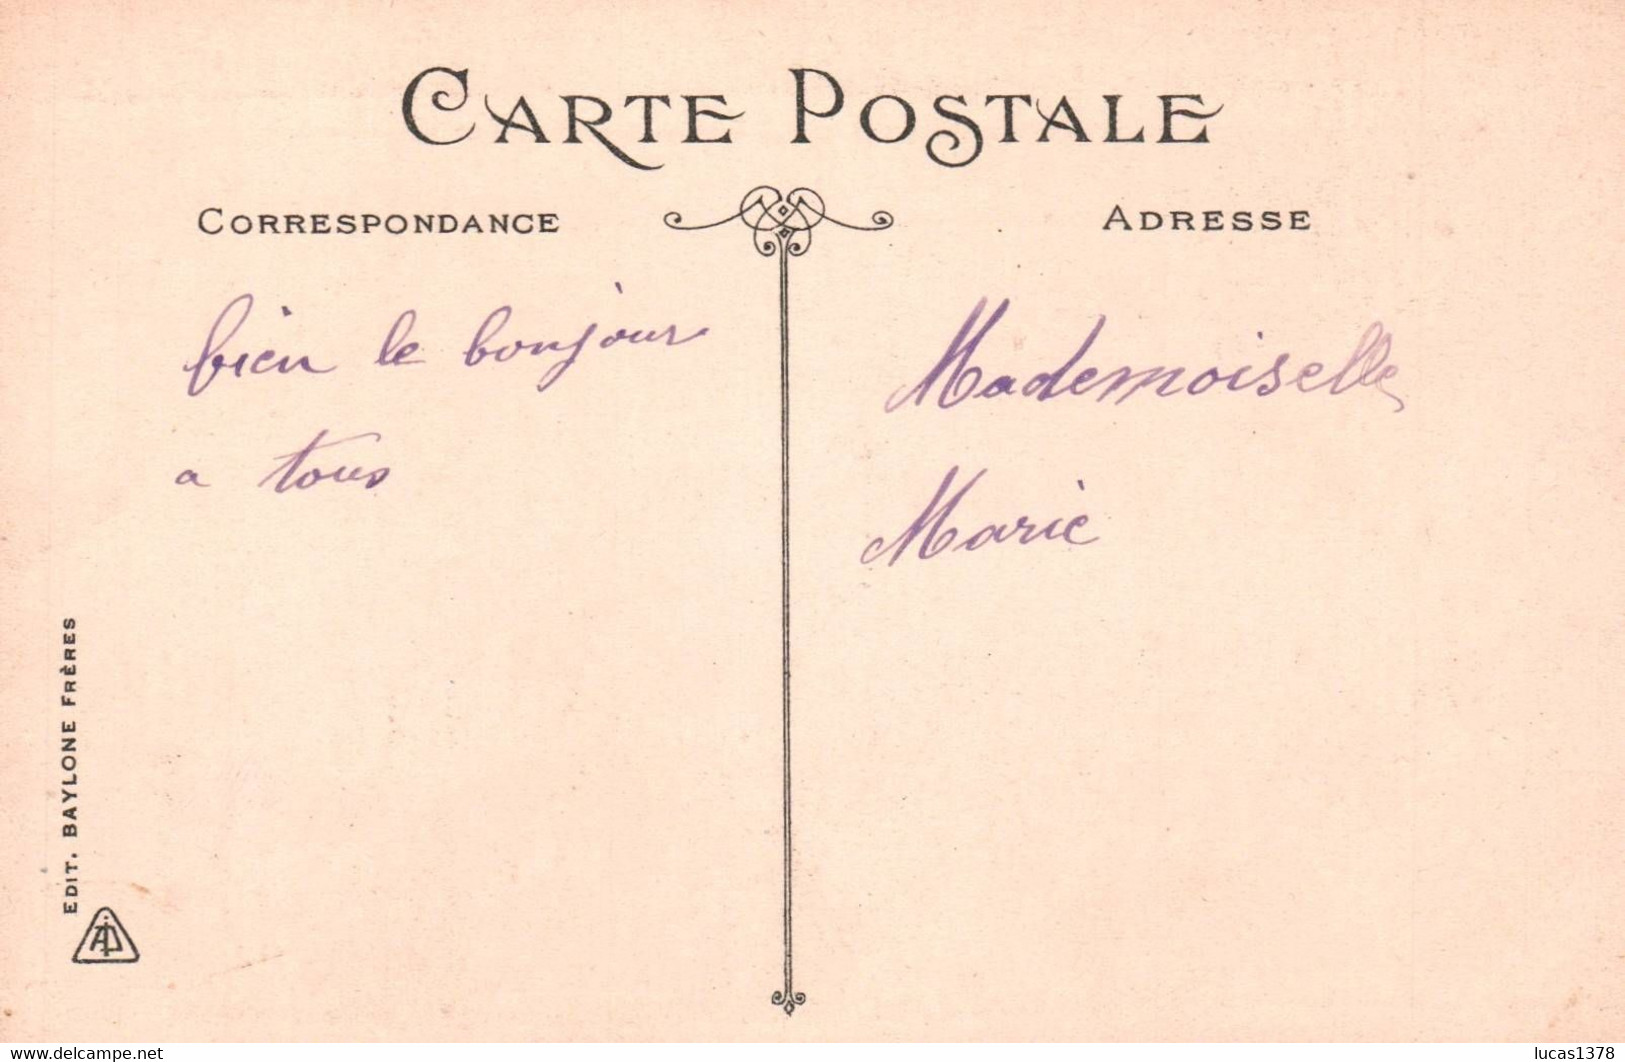 CARTE POSTALE
CORRESPONDANCE
bien le bonjour
a tous
ADRESSE
Mademoiselle
Marie
EDIT. BAYLONE FRÈRES
www.delcampe.net
lucas1378